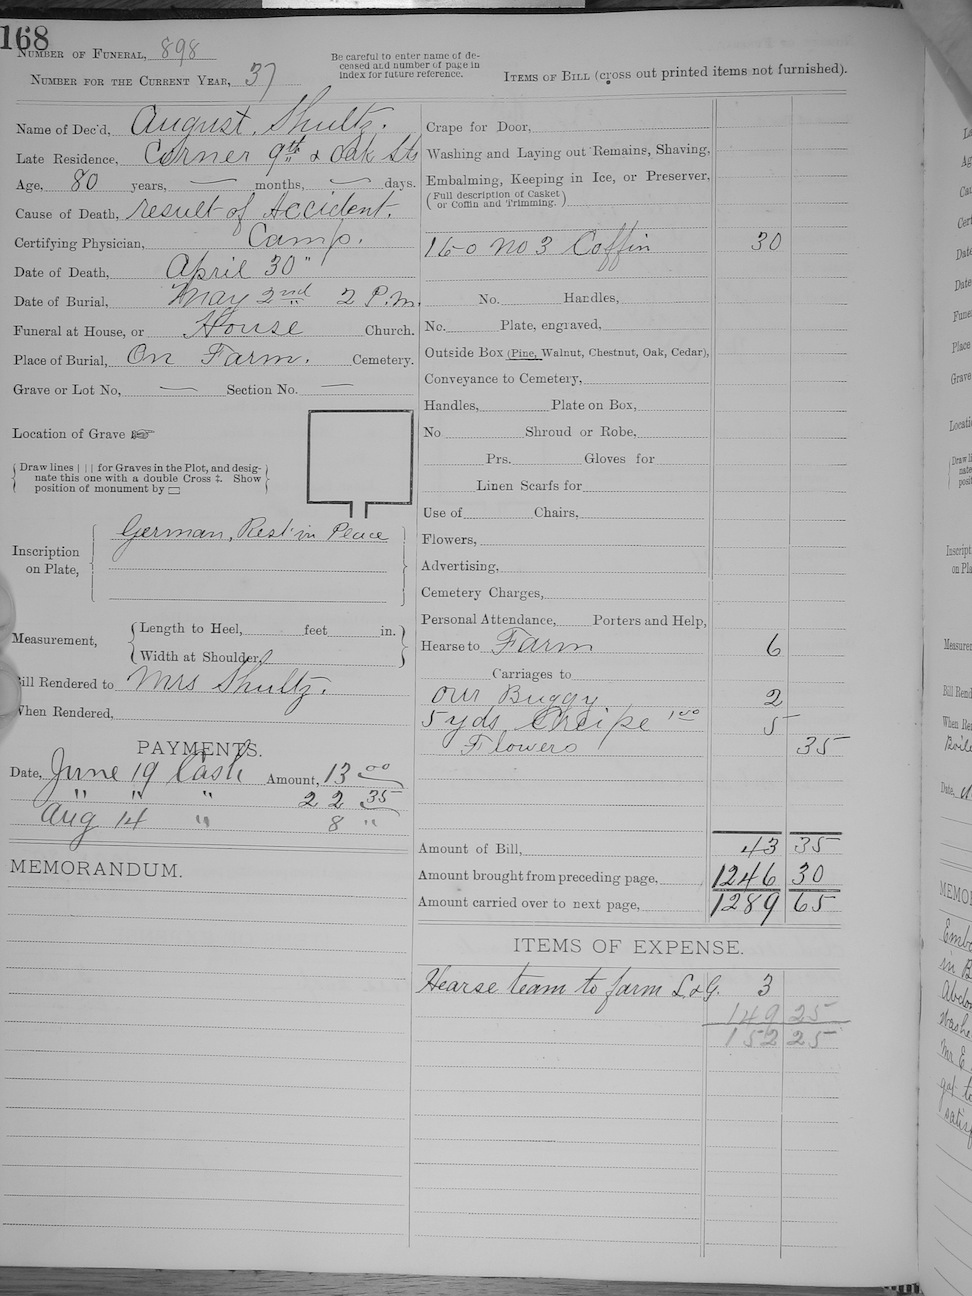 168
NUMBER OF FUNERAL, 898
NUMBER FOR THE CURRENT YEAR, 37
Be careful to enter name of de-
ceased and number of page in
index for future reference.
ITEMS OF BILL (cross out printed items not furnished).
Name of Dec'd, August Shultz.
Late Residence, Corner 9th & Oak Sts
Age, 80 years, — months, — days.
Cause of Death, result of Accident.
Certifying Physician, Camp.
Date of Death, April 30"
Date of Burial, May 2nd 2 P.M.
Funeral at House, or House Church.
Place of Burial, On Farm. Cemetery.
Grave or Lot No, — Section No. —
Location of Grave ☞
Draw lines | | | for Graves in the Plot, and desig-
nate this one with a double Cross ‡. Show
position of monument by ▭
Inscription
on Plate,
German, Rest in Peace
Measurement,
Length to Heel, feet in.
Width at Shoulder,
Bill Rendered to Mrs Shultz.
When Rendered,
PAYMENTS.
Date, June 19 Cash Amount, 13 00
" " " 22 35
Aug 14 " 8 "
MEMORANDUM.
Crape for Door,
Washing and Laying out Remains, Shaving,
Embalming, Keeping in Ice, or Preserver,
(Full description of Casket
or Coffin and Trimming.)
16-0 no 3 Coffin 30
No. Handles,
No. Plate, engraved,
Outside Box (Pine, Walnut, Chestnut, Oak, Cedar),
Conveyance to Cemetery,
Handles, Plate on Box,
No Shroud or Robe,
Prs. Gloves for
Linen Scarfs for
Use of Chairs,
Flowers,
Advertising,
Cemetery Charges,
Personal Attendance, Porters and Help,
Hearse to Farm 6
Carriages to
our Buggy 2
5 yds 1 00 5
Flowers 35
Amount of Bill, 43 35
Amount brought from preceding page, 1246 30
Amount carried over to next page, 1289 65
ITEMS OF EXPENSE.
Hearse team to farm L&G. 3
149 25
152 25